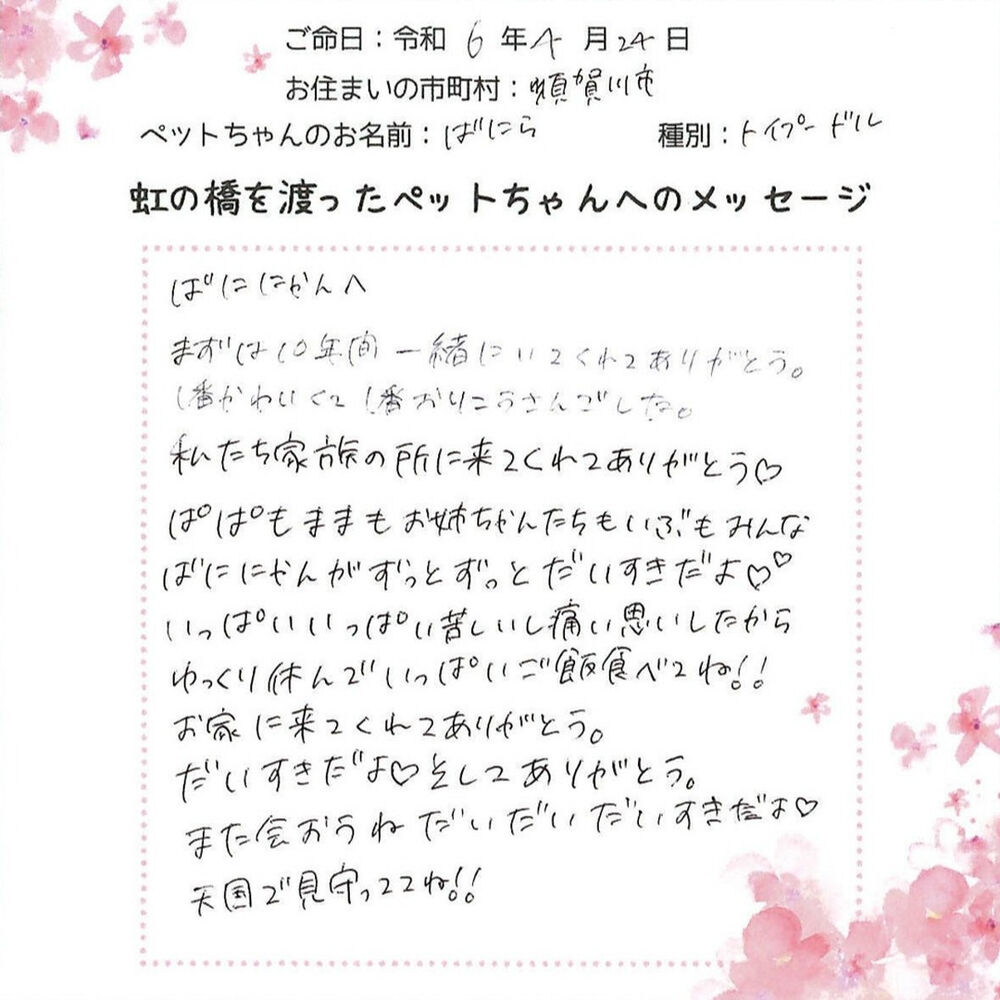 ご命日：令和 6 年 4 月 24 日
お住まいの市町村：須賀川市
ペットちゃんのお名前：ばにら 種別：トイプードル
虹の橋を渡ったペットちゃんへのメッセージ
ばににゃんへ
まずは10年間一緒にいてくれてありがとう。
1番かわいくて1番おりこうさんでした。
私たち家族の所に来てくれてありがとう♡
ぱぱもままもお姉ちゃんたちもいぶもみんな
ばににゃんがずっとずっとだいすきだよ♡♡
いっぱいいっぱい苦しいし痛い思いしたから
ゆっくり休んでいっぱいご飯食べてね!!
お家に来てくれてありがとう。
だいすきだよ♡そしてありがとう。
また会おうねだいだいだいすきだよ♡
天国で見守っててね!!